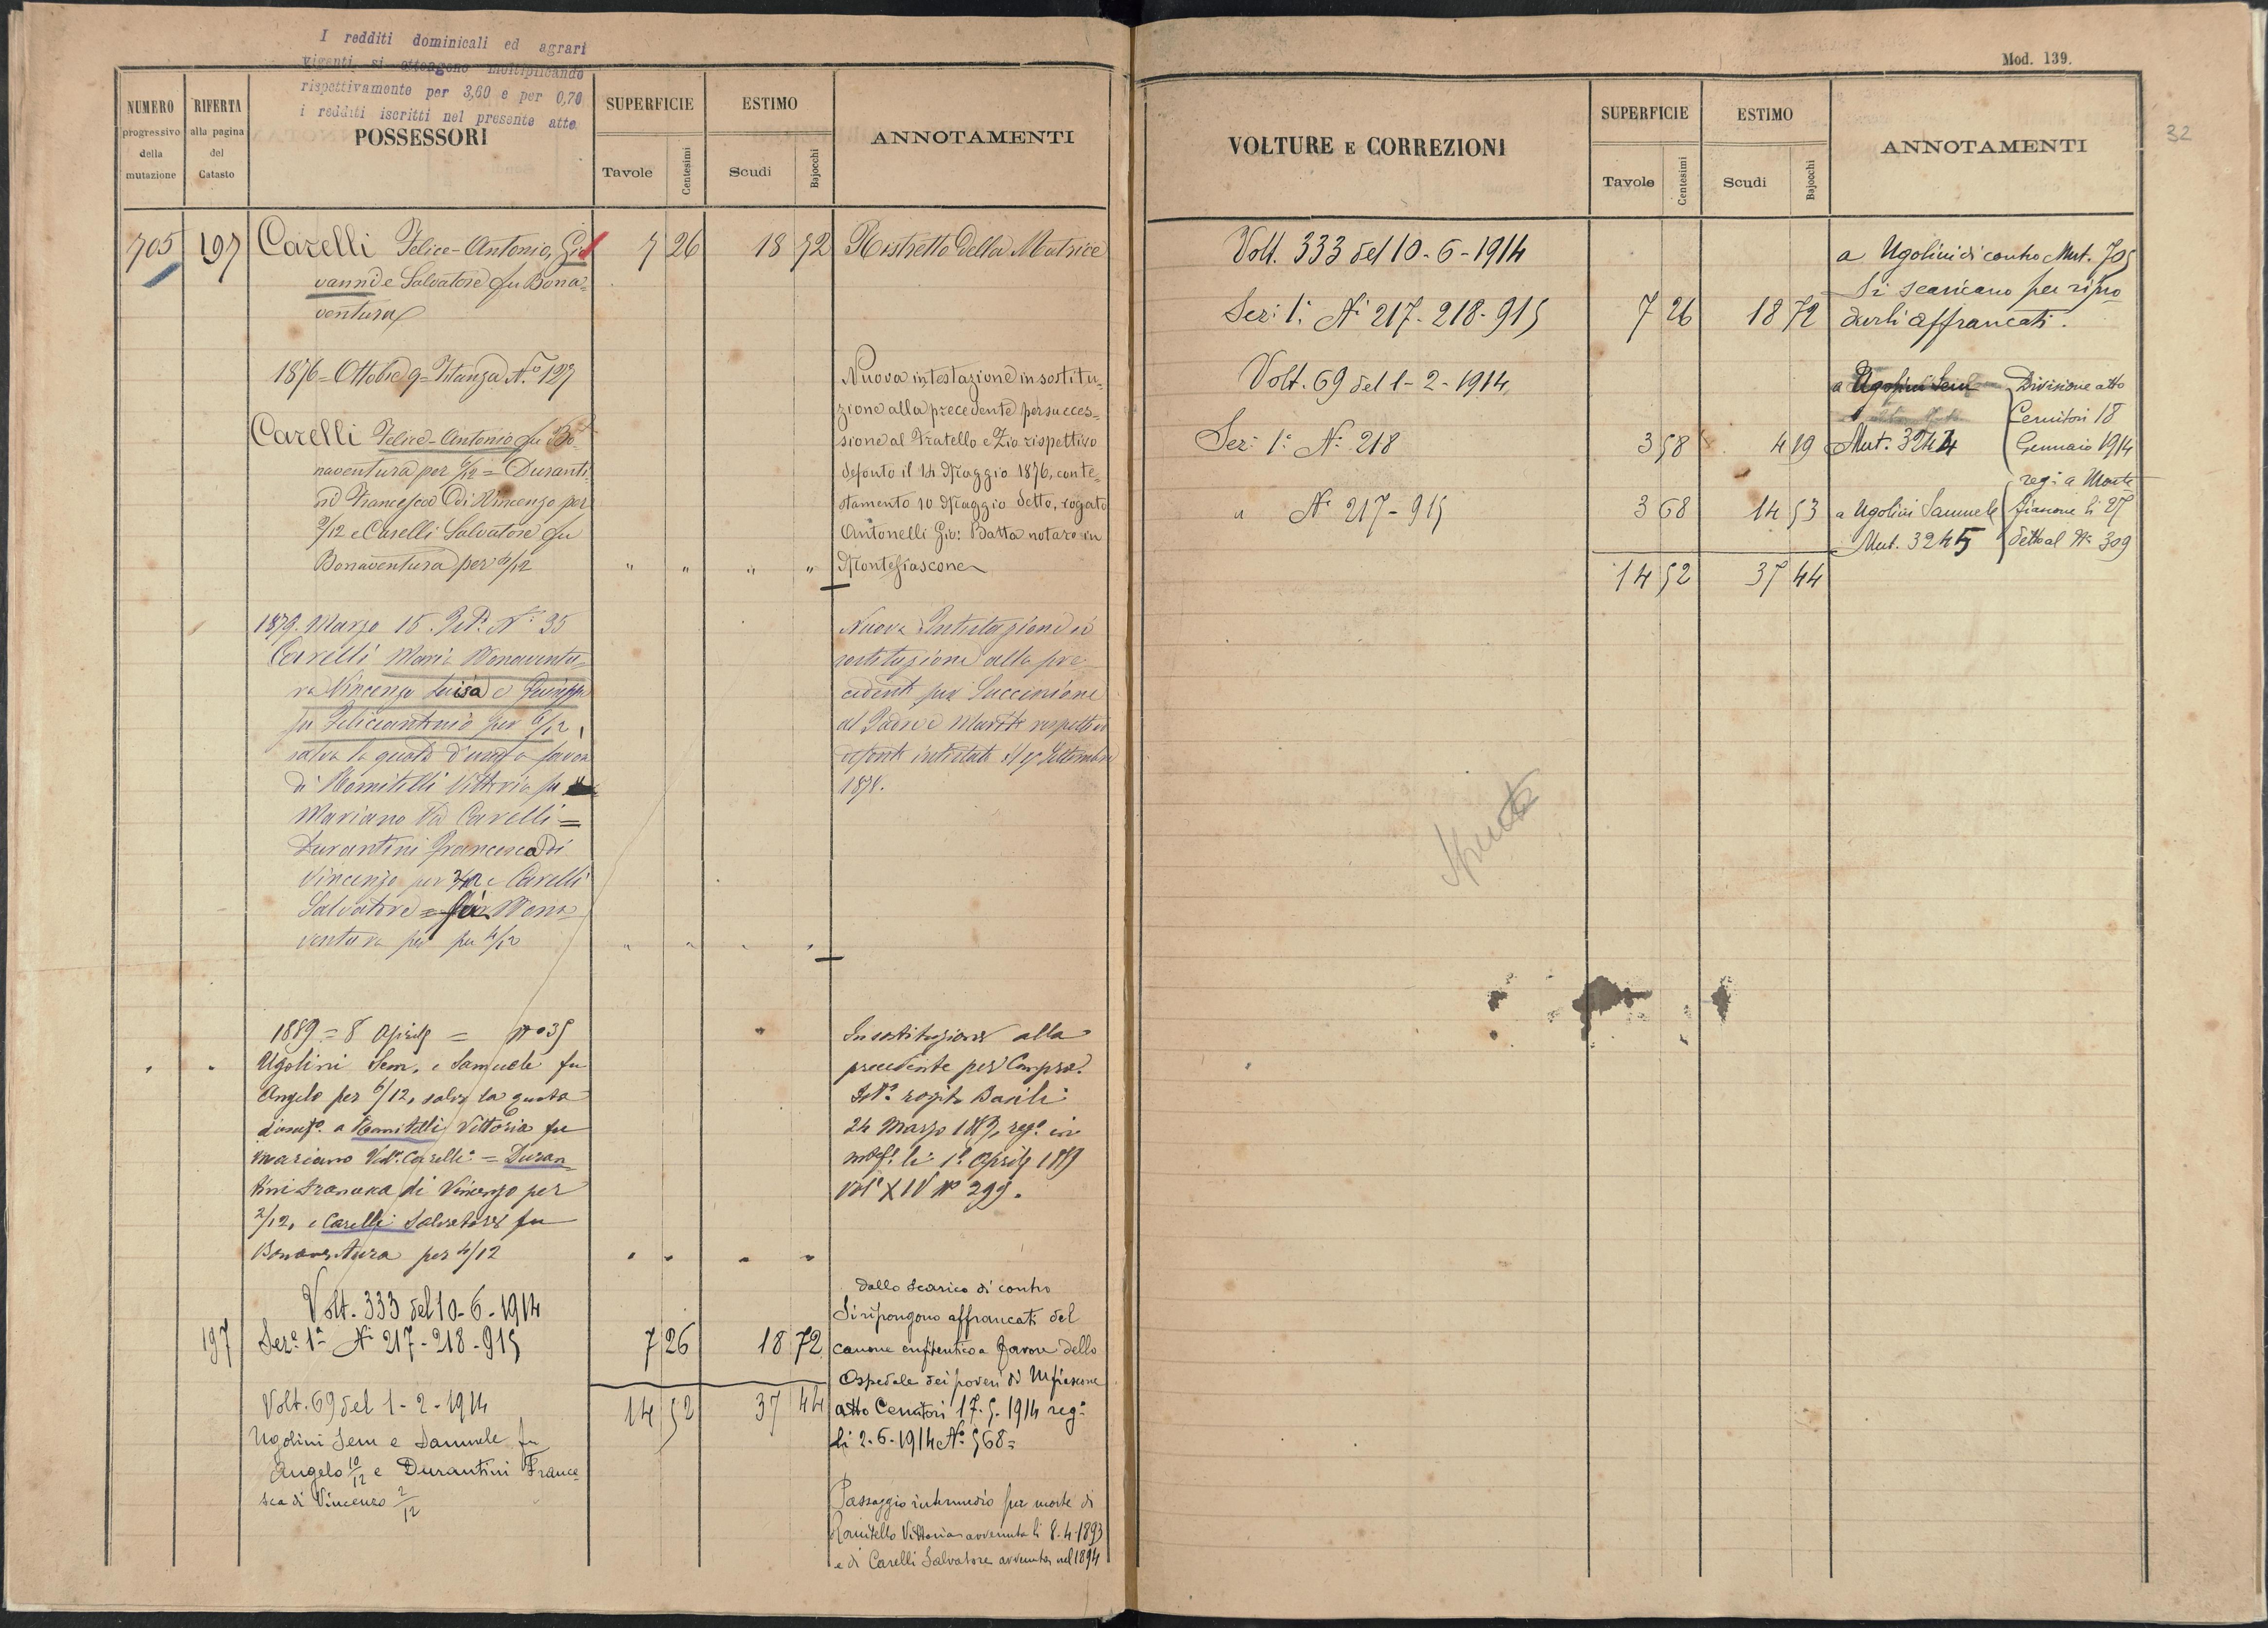 I redditi dominicali ed agrari
vigenti si ottengono moltiplicando
rispettivamente per 3,60 e per 0,70
i redditi iscritti nel presente atto
NUMERO
progressivo
della
mutazione
RIFERTA
alla pagina
del
Catasto
POSSESSORI
SUPERFICIE
Tavole
Centesimi
ESTIMO
Scudi
Bajocchi
ANNOTAMENTI
705 197 Carelli Felice-Antonio, Gio 7 26 18 72 Ristretto della Matrice
vanni e Salvatore fu Bona=
ventura
1876 = Ottobre 9 = Istanza N.o 127
Carelli Felice-Antonio fu Bo=
naventura per 6/12 = Duranti
Francesca di Vincenzo per
2/12 e Carelli Salvatore fu
Bonaventura per 4/12 " " " "
Nuova intestazione in sostitu=
zione alla precedente per succes=
sione al Fratello e Zio rispettivo
defonto il 14 Maggio 1876, con te=
stamento 10 Maggio detto, rogato
Antonelli Gio: Batta notaro in
Montefiascone
1879. Marzo 15. N.o 35
Carelli Maria Bonaventu=
ra Vincenzo Luisa e Giuseppe
fu Feliceantonio per 6/12,
salva la quota d'usuf.o a favore
di Romitelli Vittoria fu
Mariano Va Carelli =
Durantini Francesca di
Vincenzo per 2/12 e Carelli
Salvatore = fu Bona=
ventura per 4/12 " " " "
Nuova Intestazione in
sostituzione alla pre
cedente per Successione
al Padre e Marito rispettivo
defonto intestato Settembre
1878.
1889 = 8 Aprile = No 35
Ugolini Sem. e Samuele fu
Angelo per 6/12, salva la quota
d'usuf.o a Romitelli Vittoria fu
Mariano Ved.a Carelli = Duran
tini Francesca di Vincenzo per
2/12, e Carelli Salvatore fu
Bonaventura per 4/12 " " " "
In sostituzione alla
precedente per Compra.
rogito Basili
24 Marzo 1889, reg.o in
Mef. li 1.o Aprile 1889
Vol XIV No 299.
Volt. 333 del 10-6-1914
197 Sez.e 1a Ni 217-218-915 7 26 18 72
14 52 37 44
Dallo scarico di contro
Si ripongono affrancati del
canone enfiteutico a favore dello
Ospedale dei poveri di Mfiascone
atto Cernitori 17-5-1914 reg.o
li 2-6-1914 No 568=
Volt. 69 del 1-2-1914
Ugolini Sem e Samuele fu
Angelo 10/12 e Durantini France=
sca di Vincenzo 2/12
Passaggio intermedio per morte di
Romitello Vittoria avvenuta li 8-4-1893
e di Carelli Salvatore avvenuta nel 1894
Mod. 139.
32
VOLTURE E CORREZIONI
SUPERFICIE
Tavole
Centesimi
ESTIMO
Scudi
Bajocchi
ANNOTAMENTI
Volt. 333 del 10-6-1914 a Ugolini di contro Mut. 705
Si scaricano per ripro
Sez: 1a Ni 217-218-915 7 26 18 72 durli affrancati.
Volt. 69 del 1-2-1914 a Ugolini Sem Divisione atto
Cernitori 18
Sez: 1a No 218 3 58 4 19 Mut. 3244 Gennaio 1914
reg: a Monte
" Ni 217-915 3 68 14 53 a Ugolini Samuele fiascone li 27
Mut. 3245 detto al No 309
14 52 37 44
Spenta